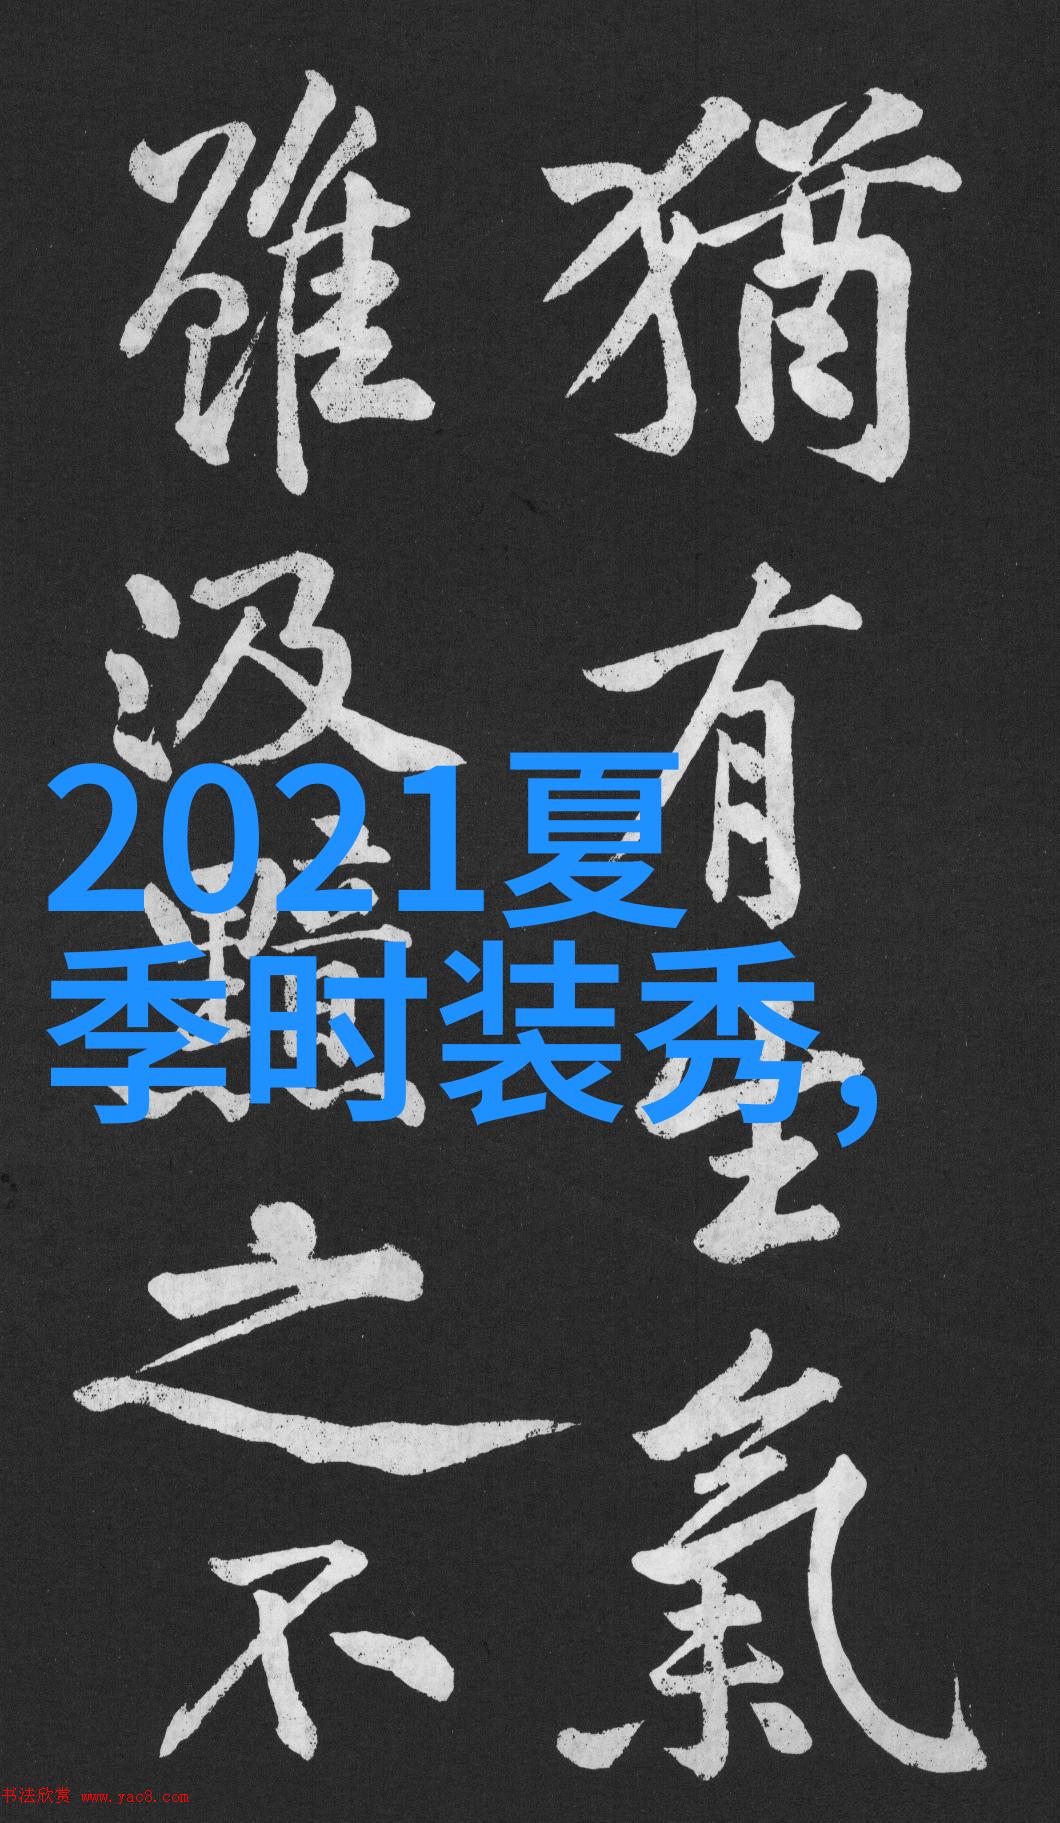 猶有生氣
雖汲黯之不
2021夏
季时装秀,
书法欣赏 www.yac8.com